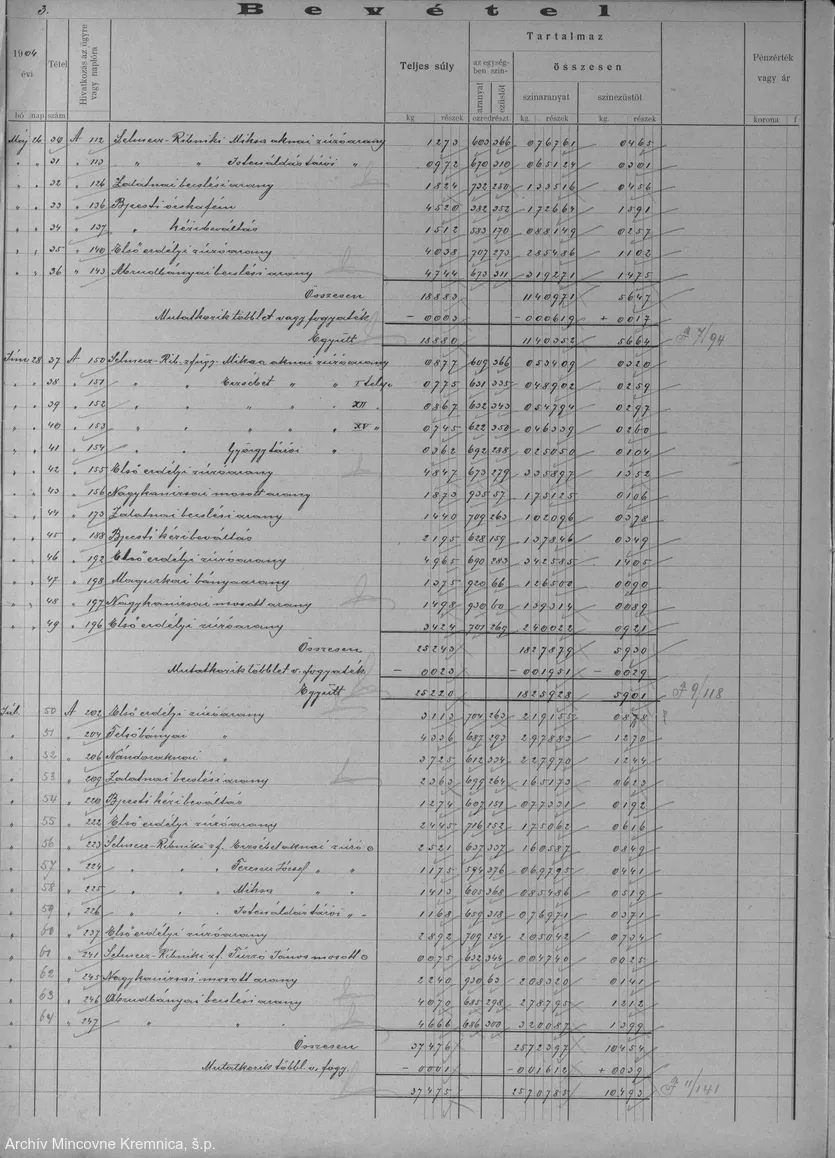 3. Bevétel
1904 évi
Tétel
Hivatkozás az ügyre vagy naplóra
Teljes súly
Tartalmaz
az egység-ben szín-
összesen
aranyat
ezüstöt
ezredrészt
színaranyat
színezüstöt
Pénzérték vagy ár
hó nap szám kg. részek kg. részek kg. részek korona f
Máj 26 30 A 112 Selmecz-Ribniki Miksa aknai zúzóarany 1273 603 366 076761 0465
" " 31 " 113 " " Istenáldás tárói " 0972 670 310 065124 0301
" " 32 " 126 Zalatnai becslési arany 1824 732 250 133516 0456
" " 33 " 136 Bpesti 4520 382 352 172664 1591
" " 34 " 137 " kézibeváltás 1512 583 170 088149 0257
" " 35 " 140 Első erdélyi zúzóarany 4038 707 273 285486 1102
" " 36 " 143 Abrudbányai becslési arany 4744 673 311 319271 1475
Összesen 18883 1140971 5647
Mutatkozik többlet vagy fogyaték - 0003 - 000619 + 0017
Együtt 18880 1140352 5664 7/94
Júni 28 37 A 150 Selmecz-Rib. Miksa aknai zúzóarany 0877 609 366 053409 0320
" " 38 " 151 " " Erzsébet " " 0775 631 335 048902 0259
" " 39 " 152 " " " " " XII " 0867 632 343 054794 0297
" " 40 " 153 " " " " " XV " 0745 622 350 046339 0260
" " 41 " 154 " " György tárói " 0362 692 288 025050 0104
" " 42 " 155 Első erdélyi zúzóarany 4847 673 279 335897 1352
" " 43 " 156 Nagykanizsai mosott arany 1873 935 57 175125 0106
" " 44 " 173 Zalatnai becslési arany 1440 709 263 102096 0378
" " 45 " 188 Bpesti kézibeváltás 2195 628 159 137846 0349
" " 46 " 192 Első erdélyi zúzóarany 4965 690 283 342585 1405
" " 47 " 198 Magurkai bányaarany 1375 920 66 126500 0090
" " 48 " 197 Nagykanizsai mosott arany 1498 930 60 139314 0089
" " 49 " 196 Első erdélyi zúzóarany 3424 701 269 240022 0921
Összesen 25243 1827879 5930
Mutatkozik többlet v. fogyaték - 0023 - 001951 - 0029
Együtt 25220 1825928 5901 9/118
Júl. 50 A 202 Első erdélyi zúzóarany 3113 704 263 219155 0878
" 51 " 204 Felsőbányai " 4336 687 293 297883 1270
" 52 " 206 Nándoraknai " 3725 612 334 227970 1244
" 53 " 209 Zalatnai becslési arany 2363 699 264 165173 0623
" 54 " 220 Bpesti kézibeváltás 1274 607 151 077331 0192
" 55 " 222 Első erdélyi zúzóarany 2445 716 252 175062 0616
" 56 " 223 Selmecz-Ribniki zf. Erzsébet aknai zúzó 2521 637 337 160587 0849
" 57 " 224 " " Ferencz József " " 1175 594 376 069795 0441
" 58 " 225 " " Miksa " " 1413 605 368 085486 0519
" 59 " 226 " " Istenáldás tárói " " 1168 659 318 076971 0371
" 60 " 237 Első erdélyi zúzóarany 2892 709 254 205042 0734
" 61 " 241 Selmecz-Ribniki zf. János mosott 0075 632 344 004740 0025
" 62 " 245 Nagykanizsai mosott arany 2240 930 63 208320 0141
" 63 " 246 Abrudbányai becslési arany 4070 685 298 278795 1212
" 64 " 247 " " " 4666 686 300 320087 1399
Összesen 37476 2572397 10454
Mutatkozik többl. v. fogy. - 0001 - 001612 + 0039
37475 2570785 10493 11/141
Archív Mincovne Kremnica, š.p.